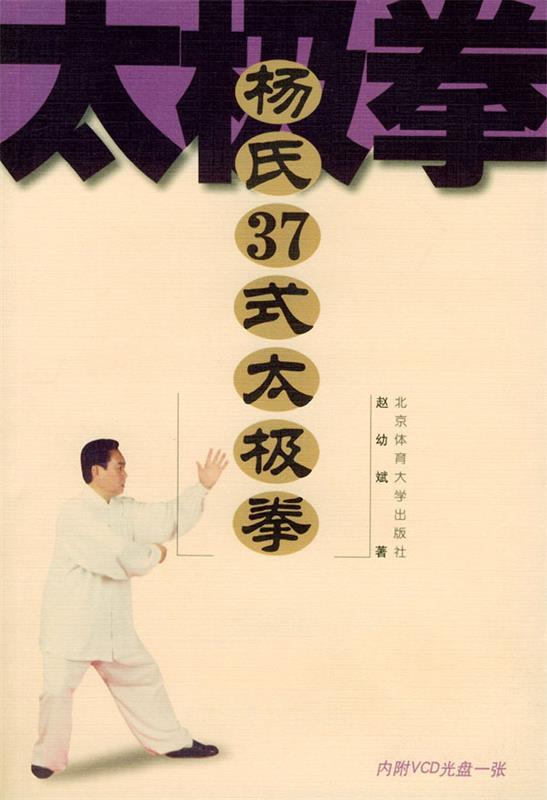 太极拳
杨氏37式太极拳
北京体育大学出版社
赵幼斌 著
内附VCD光盘一张